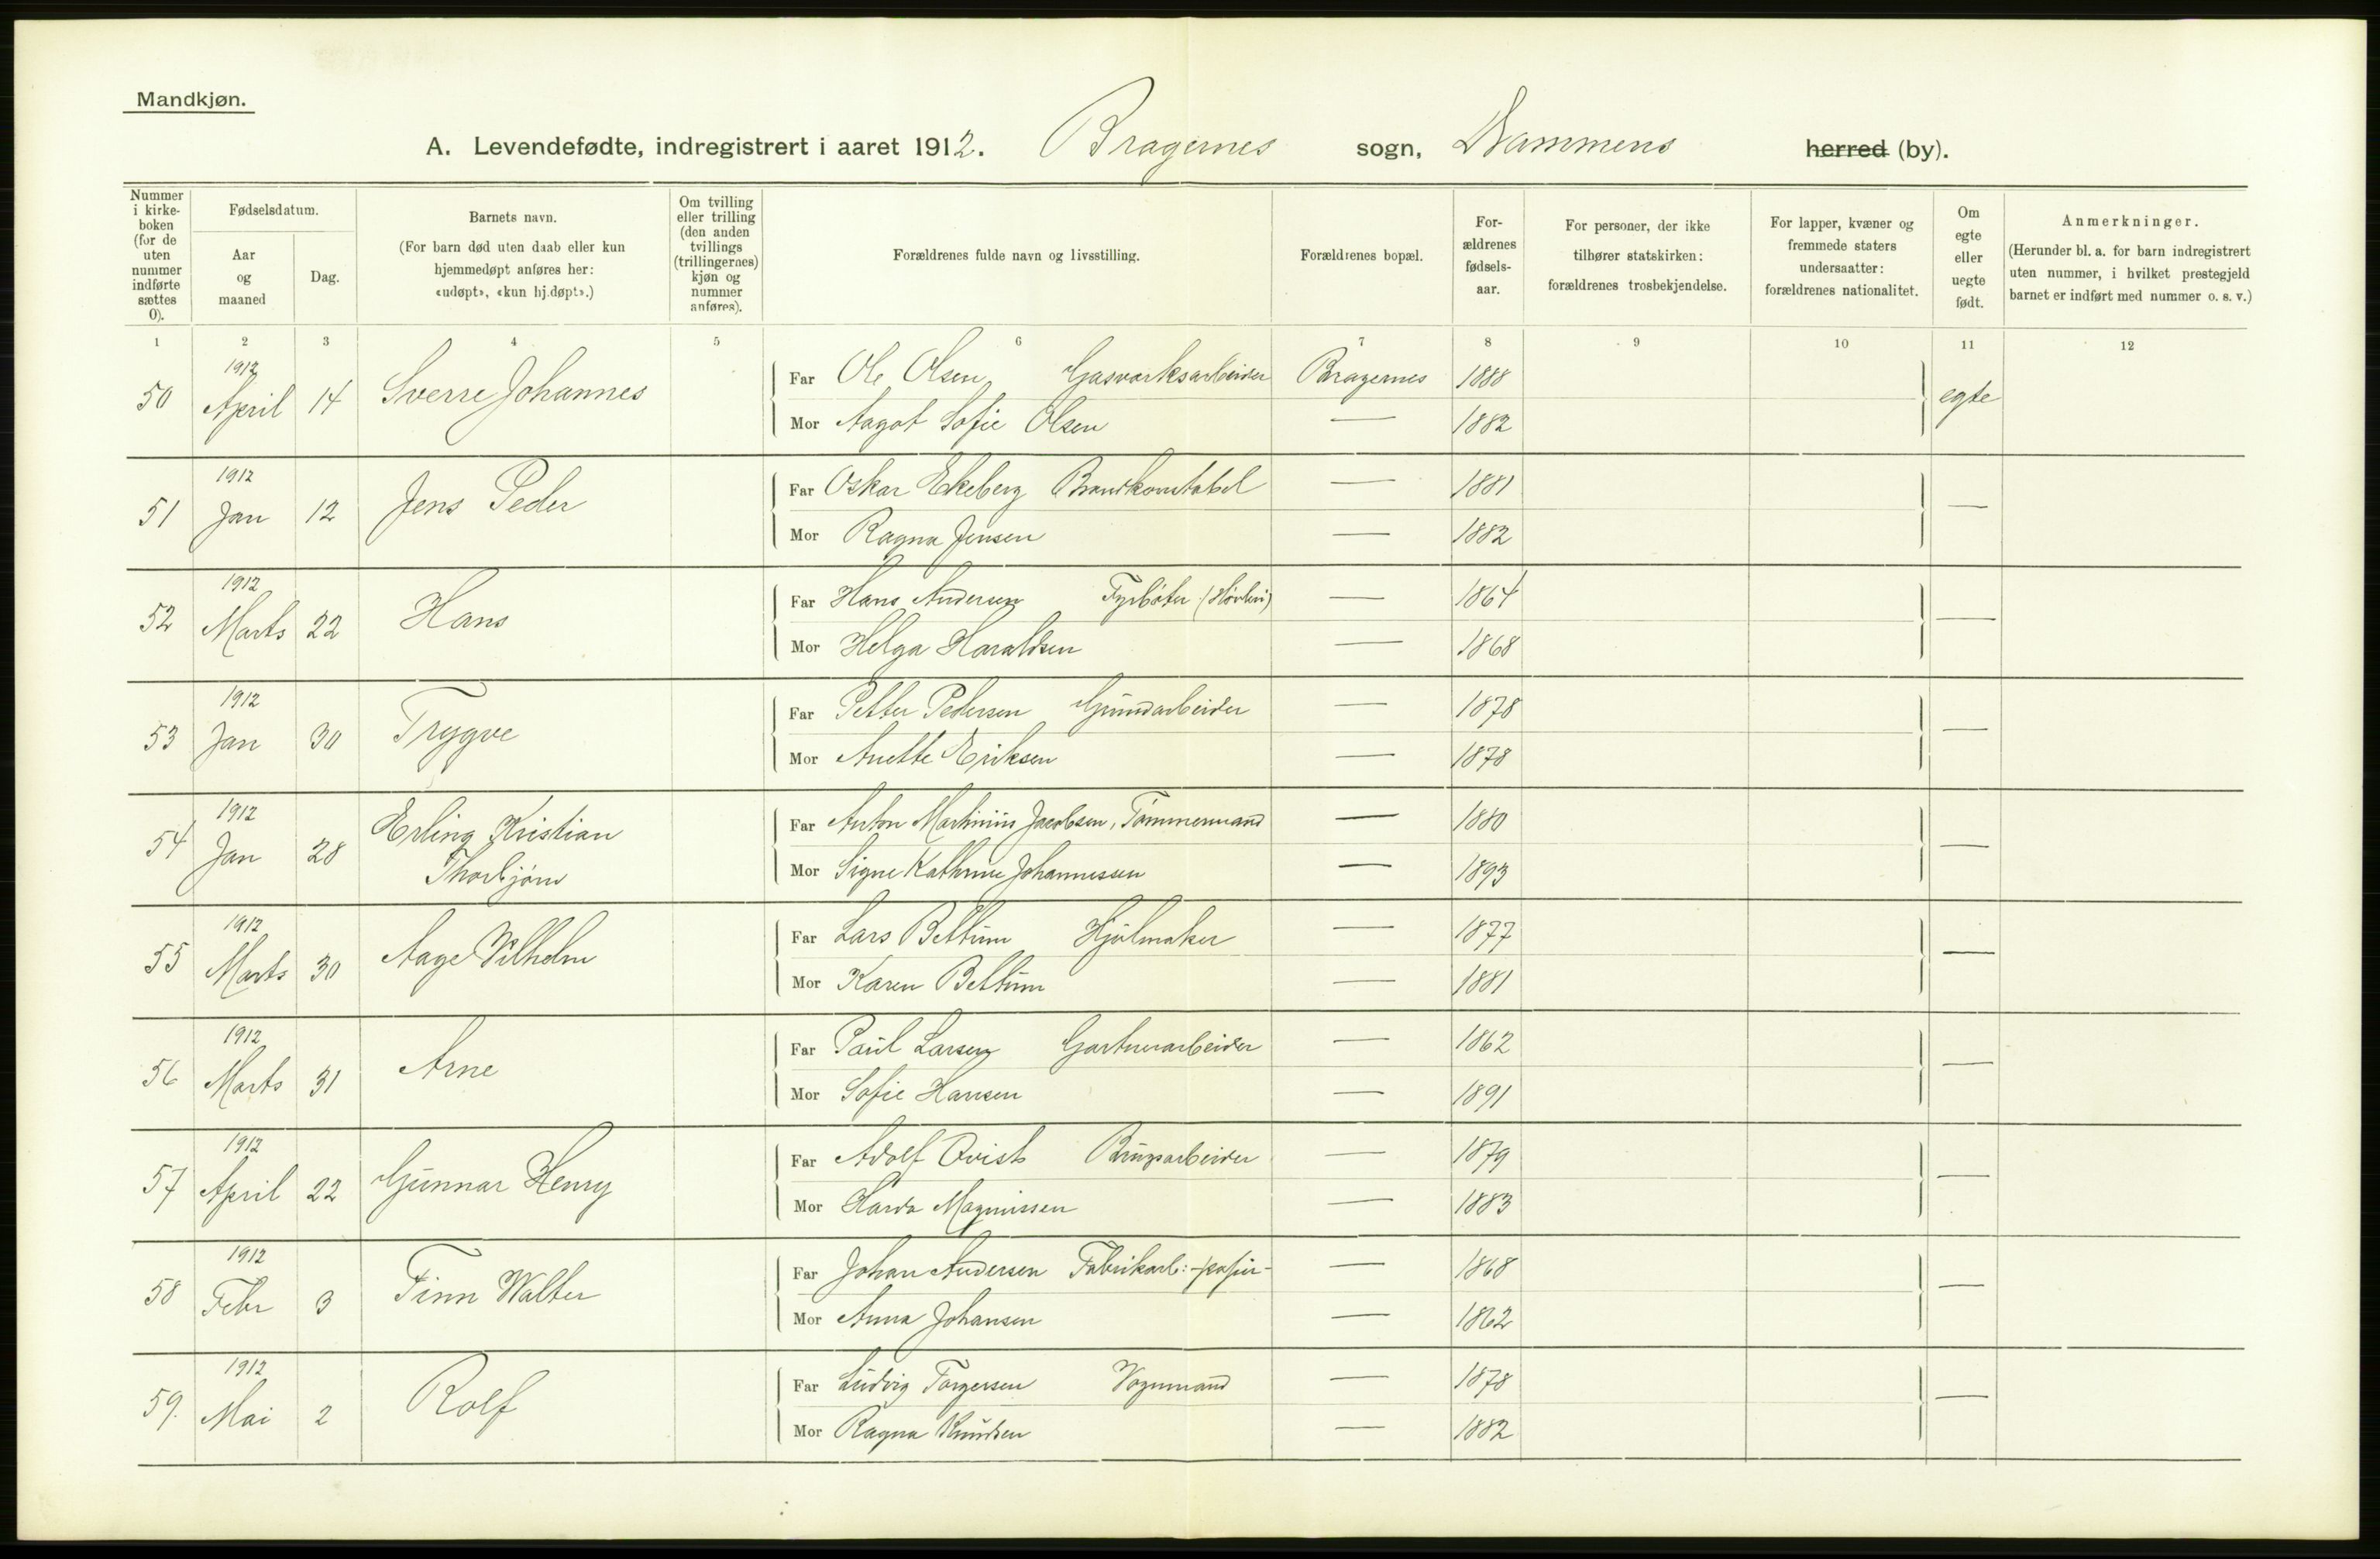 Mandkjøn.
A. Levendefødte, indregistrert i aaret 1912. Bragernes sogn, Drammens herred (by).
Nummer i kirke-boken (for de uten nummer indførte sættes 0).
Fødselsdatum.
Aar og maaned
Dag.
Barnets navn.
(For barn død uten daab eller kun hjemmedøpt anføres her: «udøpt», «kun hj.døpt».)
Om tvilling eller trilling (den anden tvillings (trillingernes) kjøn og nummer anføres).
Forældrenes fulde navn og livsstilling.
Forældrenes bopæl.
For-ældrenes fødsels-aar.
For personer, der ikke tilhører statskirken: forældrenes trosbekjendelse.
For lapper, kvæner og fremmede staters undersaatter: forældrenes nationalitet.
Om egte eller uegte født.
Anmerkninger.
(Herunder bl. a. for barn indregistrert uten nummer, i hvilket prestegjeld barnet er indført med nummer o. s. v.)
1 2 3 4 5 6 7 8 9 10 11 12
50 1912 April 14 Sverre Johannes Far Ole Olsen Gasværksarbeider Bragernes 1888 egte
Mor Aagot Sofie Olsen — 1882
51 1912 Jan 12 Jens Peder Far Oskar Ekeberg Brandkonstabel — 1881 —
Mor Ragna Jensen — 1882
52 1912 Marts 22 Hans Far Hans Andersen Fyrbøter (Høvleri) — 1864 —
Mor Helga Haraldsen — 1868
53 1912 Jan 30 Trygve Far Petter Pedersen Grundarbeider — 1878 —
Mor Anette Eriksen — 1878
54 1912 Jan 28 Erling Kristian Thorbjørn Far Anton Martinius Jacobsen, Tømmermand — 1880 —
Mor Signe Kathrine Johannessen — 1893
55 1912 Marts 30 Aage Vilhelm Far Lars Bettum Hjulmaker — 1877 —
Mor Karen Bettum — 1881
56 1912 Marts 31 Arne Far Paul Larsen Gartnerarbeider — 1862 —
Mor Sofie Hansen — 1891
57 1912 April 22 Gunnar Henry Far Adolf Qvist Brugsarbeider — 1879 —
Mor Magnussen — 1883
58 1912 Febr 3 Finn Walter Far Johan Andersen Fabrikarb: -papir- — 1868 —
Mor Anna Johansen — 1862
59. 1912 Mai 2 Rolf Far Ludvig Torgersen Vognmand — 1878 —
Mor Ragna Knudsen — 1882